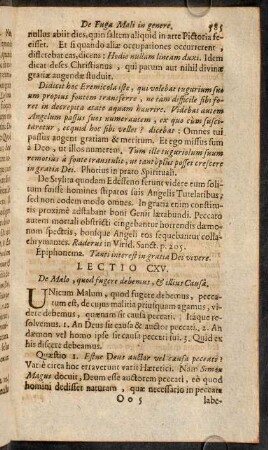 De Fuga Mali in genere. 585
nullus abiit dies, quin saltem aliquid in arte Pictoria fe-
cisset. Et si quando aliæ occupationes occurrerent,
dictitabat eas, dicens: Hodie nullam lineam duxi. Idem
dicat deses Christianus, qui parum aut nihil divinæ
gratiæ augendæ studuit.
Didicit hoc Eremicola iste, qui volebat tugurium suum
propius fontem transferre, ne tam difficile sibi fo-
ret in decrepita ætate aquam haurire. Videbat autem
Angelum passus suos numerantem, ex quo cum sisci-
taretur, ecquid hoc sibi vellet? dicebat: Omnes tui
passus augent gratiam & meritum. Et ego missus sum
à Deo, ut illos numerem. Tum ille tuguriolum suum
remotiùs à fonte transtulit, ut tantò plùs posset crescere
in gratia Dei. Phorius in prato Spirituali.
De Stylita quodam Edesseno ferunt videre eum solitum
fuisse homines stipatos suis Angelis Tutelaribus;
sed non codem omnes modo. In gratia enim constitu-
tis proximè adstabant boni Genii lætabundi. Peccato
autem mortali obstricti cingebantur horrendis dæmo-
num spectris, bonisque Angeli eos sequebantur colla-
chrymantes. Raderus in Virid. Sanct. p. 205.
Epiphonema. Tanti interest in gratia Dei vivere.
LECTIO CXV.
De Malo, quod fugere debemus, & illius Causâ.
UNicum Malum, quod fugere debemus, pecca-
tum est, de cujus malitia priusquam agamus, vi-
dere debemus, quænam sit causa peccati. Itaque re-
solvemus. 1. An Deus sit causa & auctor peccati. 2. An
dæmon vel homo ipse sit causa peccati sui. 3. Quid ex
his discere debeamus.
Quæstio 1. Estne Deus auctor vel causa peccati?
Variè circa hoc erraverunt varii Hæretici. Nam Simon
Magus docuit, Deum esse auctorem peccati, eò quod
homini dedisset naturam, quæ necessario in peccata
Oo 5 labe-